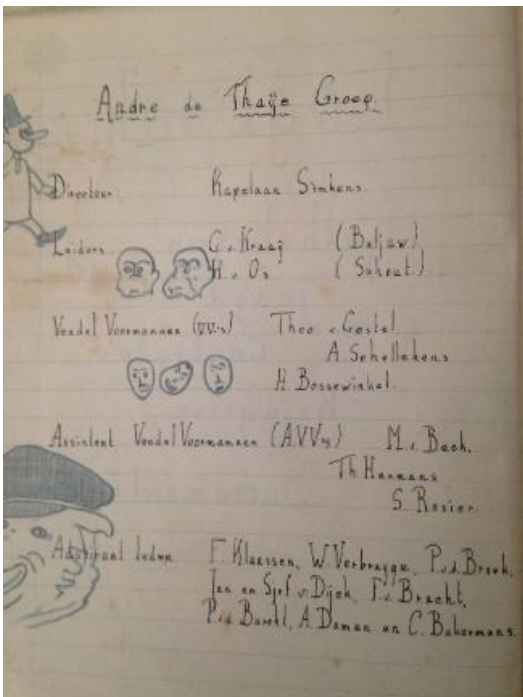 Andre de Thaÿe Groep.
Directeur Kapelaan Simkens.
Leiders G. v. Kraaij (Baljuw.)
H. v. Os (Schout.)
Vendel Voormannen (VV.s) Theo v. Gestel.
A. Schellekens
H. Bossewinkel.
Assistent Vendel Voormannen (A.VV.s) M. v. Bach.
Th. Harmans
S. Rosier.
Adspirant leden F. Klaassen, W. Verbrugge, P. v.d. Broek,
Jan en Sjef v. Dijck, F. v. Bracht,
P. v.d. A. Daman en C. Bakermans.